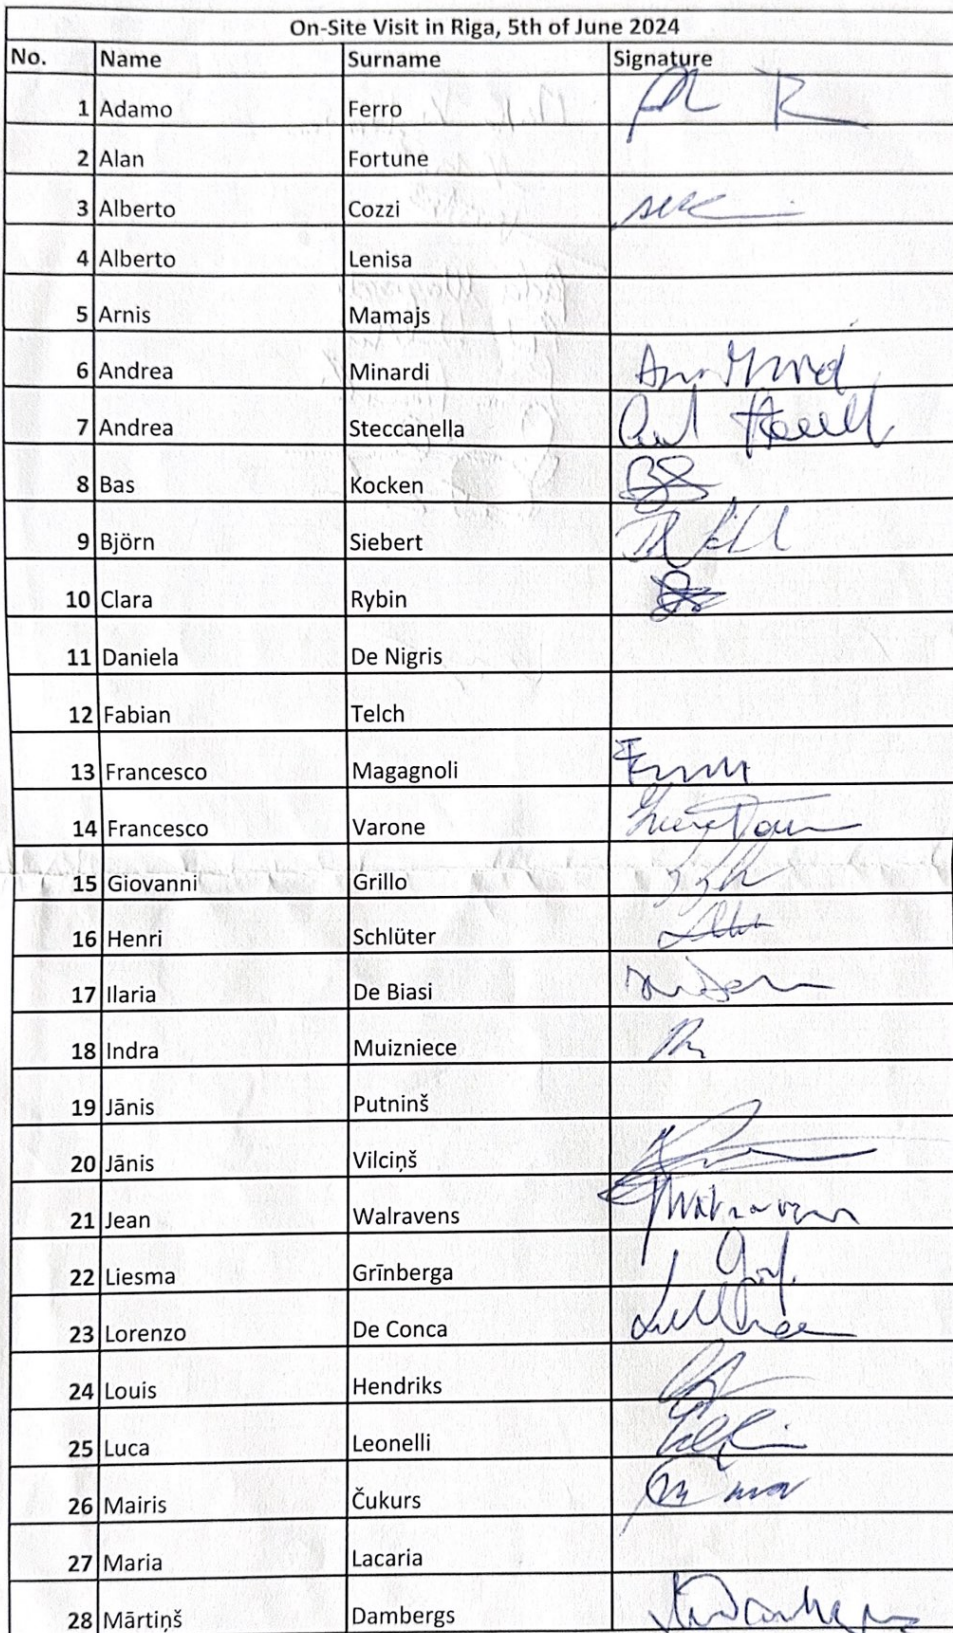 On-Site Visit in Riga, 5th of June 2024
No. Name Surname Signature
1 Adamo Ferro
2 Alan Fortune
3 Alberto Cozzi
4 Alberto Lenisa
5 Arnis Mamajs
6 Andrea Minardi
7 Andrea Steccanella
8 Bas Kocken
9 Björn Siebert
10 Clara Rybin
11 Daniela De Nigris
12 Fabian Telch
13 Francesco Magagnoli
14 Francesco Varone
15 Giovanni Grillo
16 Henri Schlüter
17 Ilaria De Biasi
18 Indra Muizniece
19 Jānis Putninš
20 Jānis Vilciņš
21 Jean Walravens
22 Liesma Grīnberga
23 Lorenzo De Conca
24 Louis Hendriks
25 Luca Leonelli
26 Mairis Čukurs
27 Maria Lacaria
28 Mārtiņš Dambergs